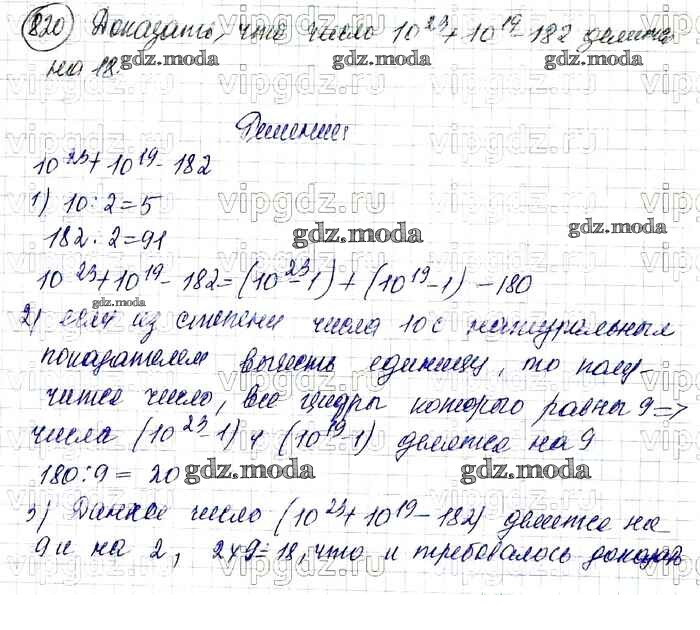 820) Доказать, что число 10²³ + 10¹⁹ - 182 делится
на 18.
Решение
10²³ + 10¹⁹ - 182
1) 10 : 2 = 5
182 : 2 = 91
10²³ + 10¹⁹ - 182 = (10²³ - 1) + (10¹⁹ - 1) - 180
2) если из степени числа 10 с натуральным
показателем вычесть единицу, то полу-
чится число, все цифры которого равны 9 =>
числа (10²³ - 1) и (10¹⁹ - 1) делятся на 9
180 : 9 = 20
3) Данное число (10²³ + 10¹⁹ - 182) делится на
9 и на 2, 2×9=18, что и требовалось доказать
gdz.moda
vipgdz.ru